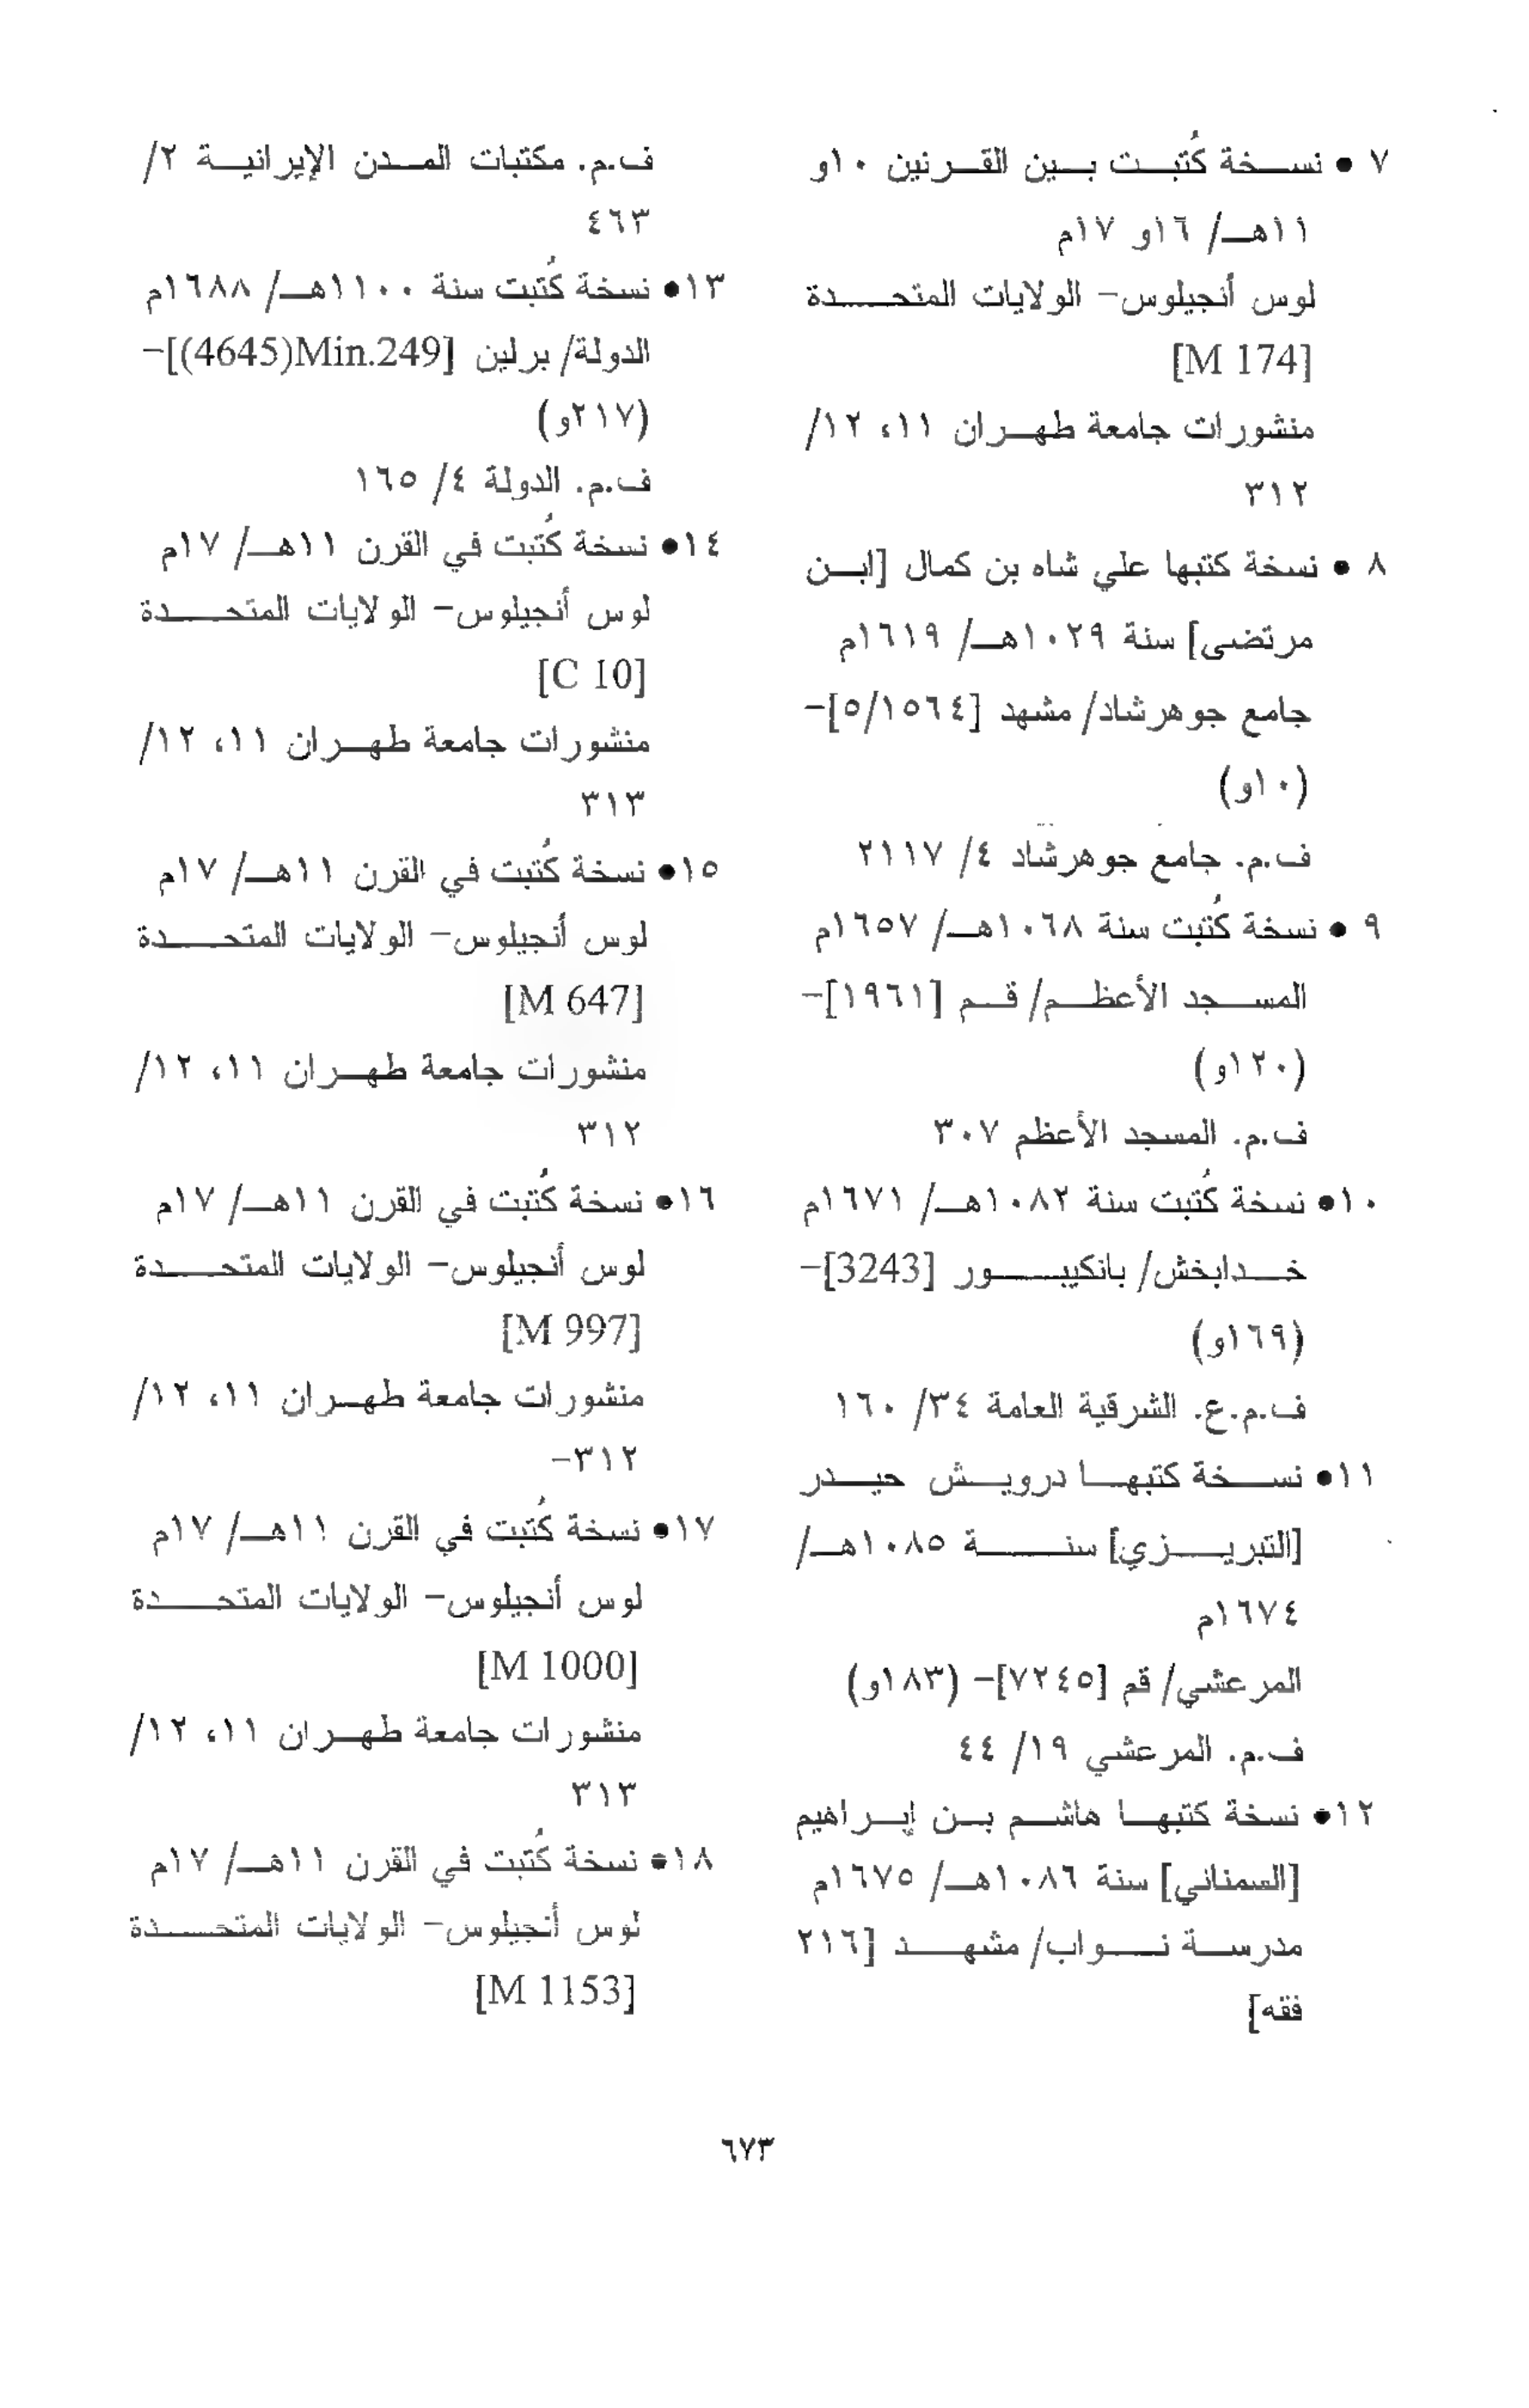 ٧ • نسخة كُتبت بين القرنين ١٠و
١١هـ/ ١٦و ١٧م
لوس أنجيلوس- الولايات المتحدة
[M 174]
منشورات جامعة طهران ١١، ١٢/
٣١٢
٨ • نسخة كتبها علي شاه بن كمال [ابن
مرتضى] سنة ١٠٢٩هـ/ ١٦١٩م
جامع جوهرشاد/ مشهد [٥/١٥٦٤]-
(١٠و)
ف.م. جامع جوهرشاد ٤/ ٢١١٧
٩ • نسخة كُتبت سنة ١٠٦٨هـ/ ١٦٥٧م
المسجد الأعظم/ قم [١٩٦١]-
(١٢٠و)
ف.م. المسجد الأعظم ٣٠٧
١٠• نسخة كُتبت سنة ١٠٨٢هـ/ ١٦٧١م
خدابخش/ بانكيبور [3243]-
(١٦٩و)
ف.م.ع. الشرقية العامة ٣٤/ ١٦٠
١١• نسخة كتبها درويش حيدر
[التبريزي] سنة ١٠٨٥هـ/
١٦٧٤م
المرعشي/ قم [٧٢٤٥]- (١٨٣و)
ف.م. المرعشي ١٩/ ٤٤
١٢• نسخة كتبها هاشم بن إبراهيم
[السمناني] سنة ١٠٨٦هـ/ ١٦٧٥م
مدرسة نواب/ مشهد [٢١٦
فقه]
ف.م. مكتبات المدن الإيرانية ٢/
٤٦٣
١٣• نسخة كُتبت سنة ١١٠٠هـ/ ١٦٨٨م
الدولة/ برلين [Min.249(4645)]-
(٢١٧و)
ف.م. الدولة ٤/ ١٦٥
١٤• نسخة كُتبت في القرن ١١هـ/ ١٧م
لوس أنجيلوس- الولايات المتحدة
[C 10]
منشورات جامعة طهران ١١، ١٢/
٣١٣
١٥• نسخة كُتبت في القرن ١١هـ/ ١٧م
لوس أنجيلوس- الولايات المتحدة
[M 647]
منشورات جامعة طهران ١١، ١٢/
٣١٢
١٦• نسخة كُتبت في القرن ١١هـ/ ١٧م
لوس أنجيلوس- الولايات المتحدة
[M 997]
منشورات جامعة طهران ١١، ١٢/
٣١٢-
١٧• نسخة كُتبت في القرن ١١هـ/ ١٧م
لوس أنجيلوس- الولايات المتحدة
[M 1000]
منشورات جامعة طهران ١١، ١٢/
٣١٣
١٨• نسخة كُتبت في القرن ١١هـ/ ١٧م
لوس أنجيلوس- الولايات المتحدة
[M 1153]
٦٧٣